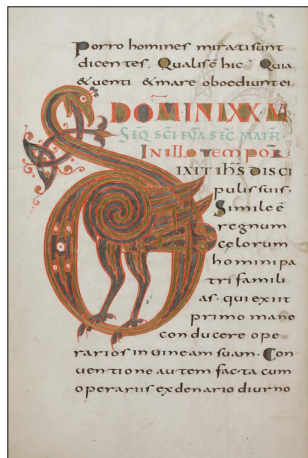 Porro homines mirati sunt
dicentes. Qualis ē hic. Quia
& venti & mare oboediunt ei
DOM̄INI XX
SEQ SC̄I EVA SEC̄ MATH
IN ILLO TEMPOR
IXIT IH̄S DISCI
pulis suis.
Simile ē
regnum
celorum
homini pa
tri famili
as. qui exiit
primo mane
conducere ope
rarios in vineam suam. Con
ventione autem facta cum
operariis ex denario diurno